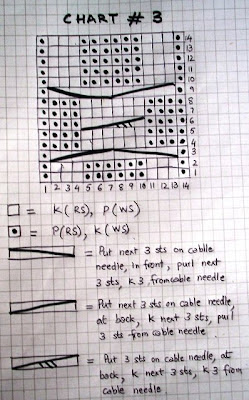 CHART # 3
14
13
12
11
10
9
8
7
6
5
4
3
2
1
1 2 3 4 5 6 7 8 9 10 11 12 13 14
= K (RS), P (WS)
= P(RS), K (WS)
= Put next 3 sts on cable
needle, in front, purl next
3 sts, K3, from cable needle
= Put next 3 sts on cable needle,
at back, K next 3 sts, purl
3 sts from cable needle.
= Put 3 sts on cable needle, at
back, K next 3 sts, K 3 from
cable needle.